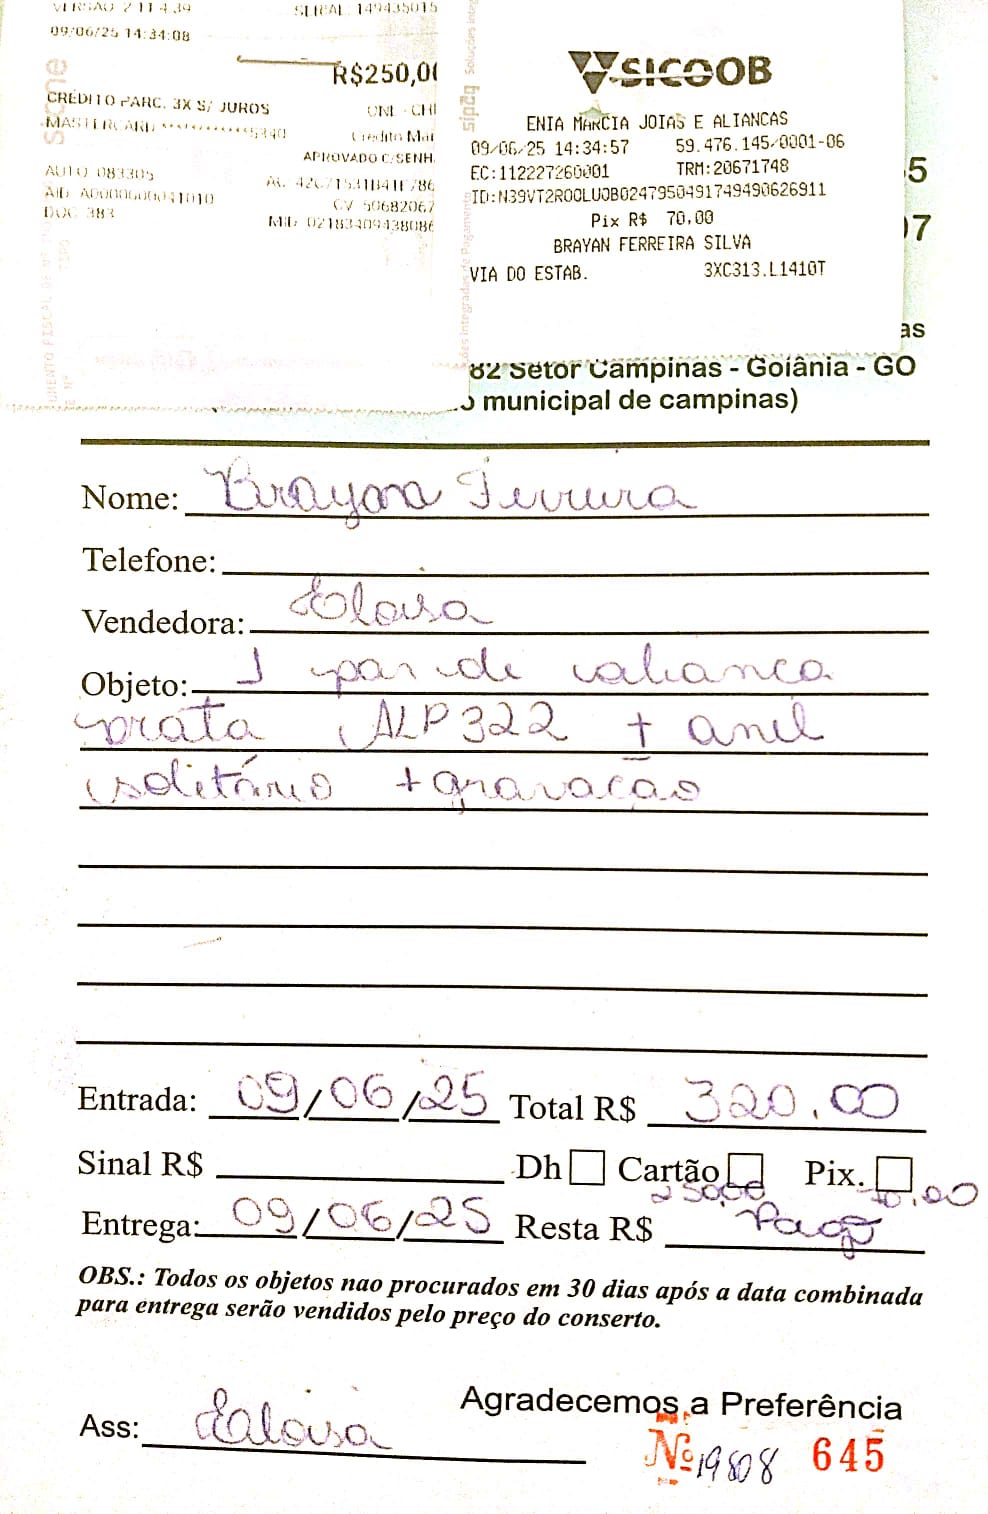 VERSAO 2.11.4.39 SERIAL 149435015
09/06/25 14:34:08
R$250,00
CREDITO PARC. 3X S/ JUROS ONL - CHI
MASTERCARD ************5340 Credito Mas
APROVADO C/SENH
AUTO 083305
AID A0000000041010 CV 50682067
DOC 383 MID 02183409438086
SICOOB
ENIA MARCIA JOIAS E ALIANCAS
09/06/25 14:34:57 59.476.145/0001-06
EC:112227260001 TRM:20671748
ID:N39VT2ROOLUOB0247950491749490626911
Pix R$ 70,00
BRAYAN FERREIRA SILVA
VIA DO ESTAB. 3XC313.L1410T
5
07
as
82 Setor Campinas - Goiânia - GO
o municipal de campinas)
Nome: Brayan Ferreira
Telefone:
Vendedora: Eloisa
Objeto: 1 par de alianca
prata ALP322 + anel
solitário + gravacão
Entrada: 09/06/25 Total R$ 320,00
Sinal R$ Dh Cartão Pix.
250,00 70,00
Entrega: 09/06/25 Resta R$ Pago
OBS.: Todos os objetos nao procurados em 30 dias após a data combinada
para entrega serão vendidos pelo preço do conserto.
Agradecemos a Preferência
Ass: Eloisa
Nº 19808 645